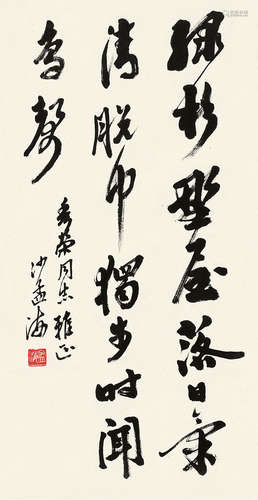 绿杉野屋落日气
清脱巾独步时闻
鸟声
秀荣同志雅正
沙孟海